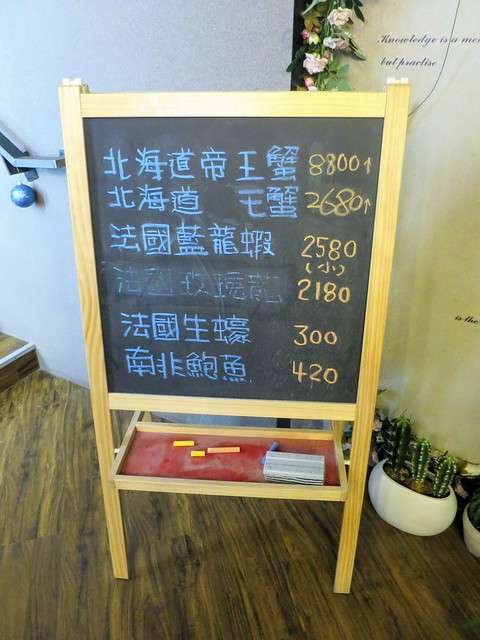 Knowledge is a
but practise
北海道帝王蟹 8800↑
北海道 毛蟹 2680↑
法國藍龍蝦 2580
(小)
2180
法國生蠔 300
南非鮑魚 420
is the